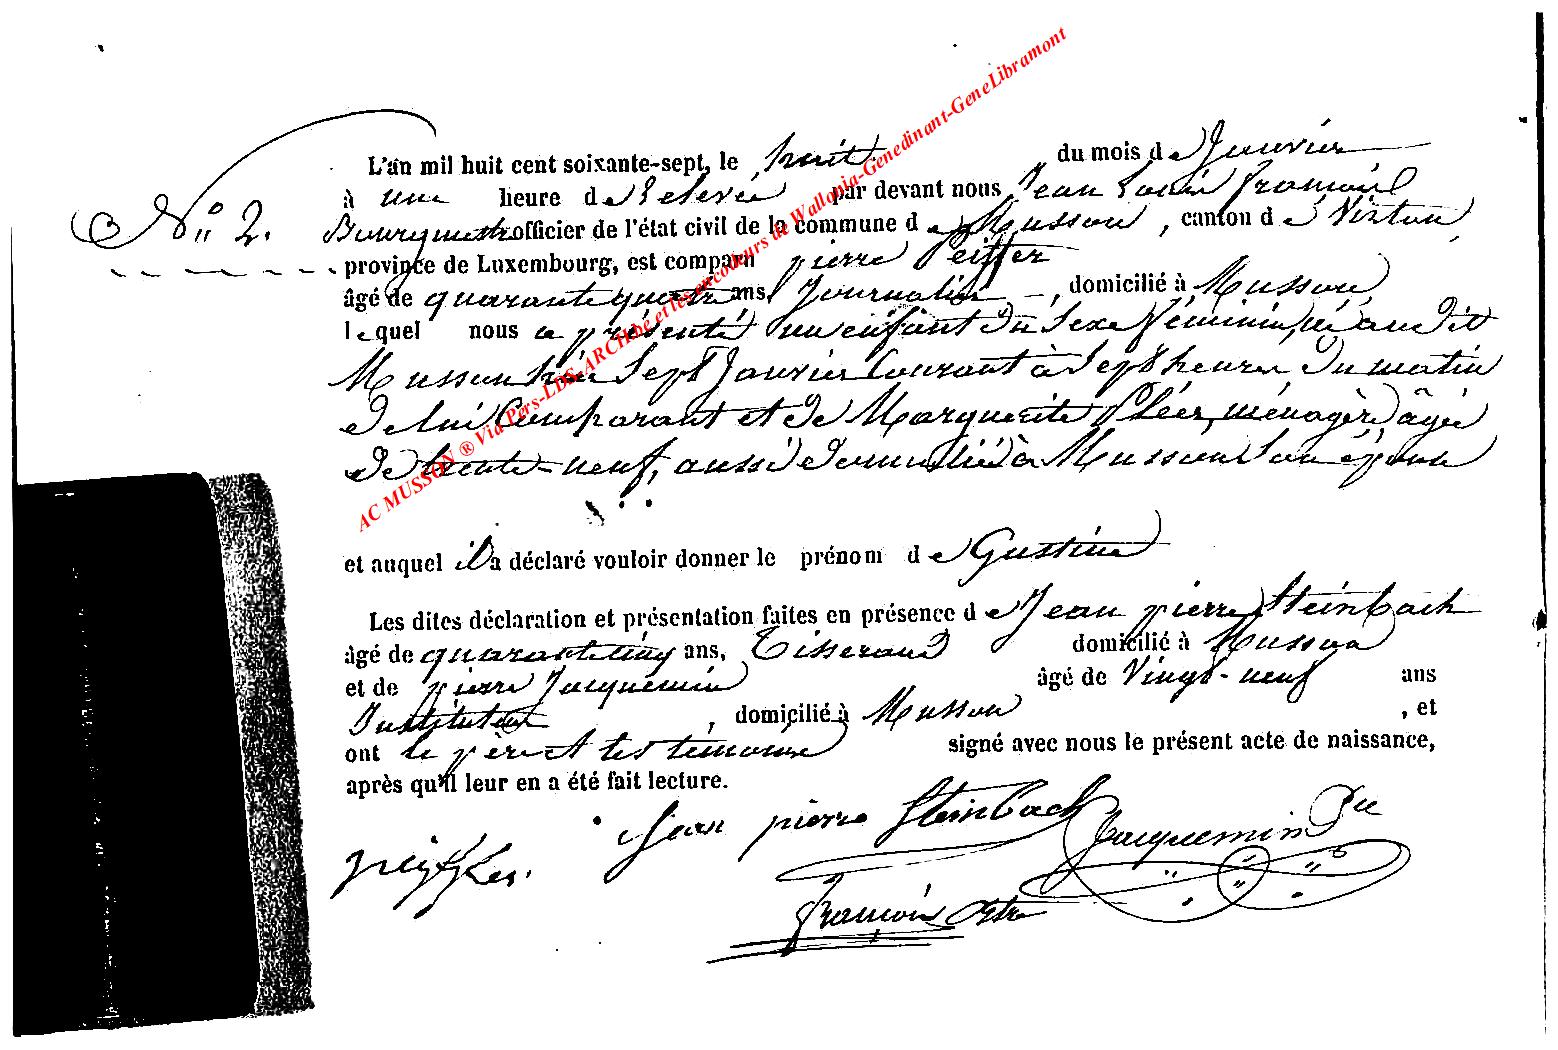 L'an mil huit cent soixante-sept, le huit du mois de Janvier
à une heure de relevée par devant nous Jean Louis François
N° 2. Bourgmestre officier de l'état civil de la commune de Musson, canton de Virton,
province de Luxembourg, est comparu pierre Peiffer
âgé de quarante quatre ans, Journalier, domicilié à Musson
lequel nous a présenté un enfant du Sexe féminin, né au dit
Musson hier Sept Janvier Courant à Sept heures du matin
de lui Comparant et de Marguerite, ménagère âgée
de trente-neuf, aussi domicilié à Musson Son épouse
et auquel il a déclaré vouloir donner le prénom de Gustine
Les dites déclaration et présentation faites en présence de Jean pierre Steinbach
âgé de quarante cinq ans, Tisserand domicilié à Musson
et de pierre Jacquemin âgé de Vingt-neuf ans
Instituteur, domicilié à Musson, et
ont le père et les témoins signé avec nous le présent acte de naissance,
après qu'il leur en a été fait lecture.
Jean pierre Steinbach Jacquemin Pre
peiffer.
François
AC MUSSON ® Via Pers-LDS-ARCH.be et les encodeurs de Wallonia-Genedinant-GeneLibramont